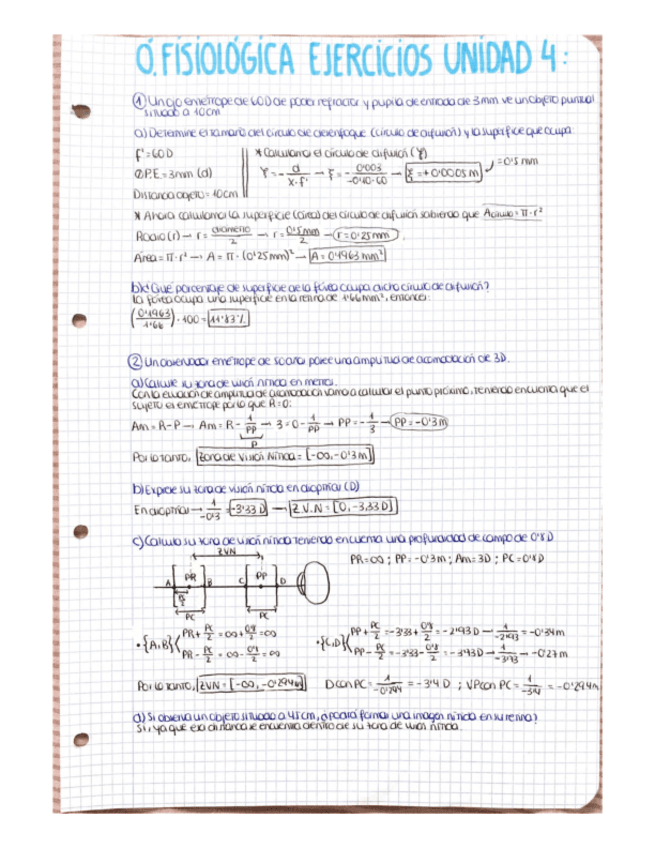 O. FISIOLÓGICA EJERCICIOS UNIDAD 4:
① Un ojo emétrope de 60D de poder refractor y pupila de entrada de 3mm ve un objeto puntual
situado a 10cm
a) Determine el tamaño del círculo de desenfoque (círculo de difusión) y la superficie que ocupa.
f'=60D
Ø P.E=3mm (d)
Distancia objeto=10cm
* Calculamos el círculo de difusión (ξ)
ξ = - d / x·f' → ξ = - 0'003 / -0'10·60 → ξ=+0'0005 m = 0'5 mm
* Ahora calculamos la superficie (área) del círculo de difusión sabiendo que Acírculo = π·r²
Radio (r) → r = diámetro / 2 → r = 0'5mm / 2 → r=0'25mm
Área = π·r² → A = π·(0'25mm)² → A = 0'1963 mm²
b) ¿Qué porcentaje de superficie de la fóvea ocupa dicho círculo de difusión?
La fóvea ocupa una superficie en la retina de 1'66mm², entonces:
(0'1963 / 1'66)·100 = 11'83%
② Un observador emétrope de 50 años posee una amplitud de acomodación de 3D.
a) Calcule su zona de visión nítida en metros.
Con la ecuación de amplitud de acomodación vamos a calcular el punto próximo, teniendo en cuenta que el
sujeto es emétrope por lo que R=0:
Am = R-P → Am = R - 1/PP → 3 = 0 - 1/PP → PP = - 1/3 → PP = -0'3m
P
Por lo tanto, Zona de Visión Nítida = [-∞, -0'3m]
b) Exprese su zona de visión nítida en dioptrías (D)
En dioptrías → 1/-0'3 = -3'33D → Z.V.N = [0, -3,33D]
c) Calcula su zona de visión nítida teniendo en cuenta una profundidad de campo de 0'8D
ZVN
PR=∞ ; PP=-0'3m ; Am=3D ; PC=0'8D
A PR B C PP D
PC/2
PC PC
· {A,B} PR + PC/2 = ∞ + 0'8/2 = ∞
PR - PC/2 = ∞ - 0'8/2 = ∞
· {C,D} PP + PC/2 = -3'33 + 0'8/2 = -2'93D → 1/-2'93 = -0'34m
PP - PC/2 = -3'33 - 0'8/2 = -3'73D → 1/-3'73 → -0'27m
Por lo tanto, ZVN = [-∞, -0'294m] D con PC = 1/-0'294 = -3'4D ; VP con PC = 1/-3'4 = -0'294m
d) Si observa un objeto situado a 45cm, ¿podrá formar una imagen nítida en su retina?
Sí, ya que esa distancia se encuentra dentro de su zona de visión nítida.